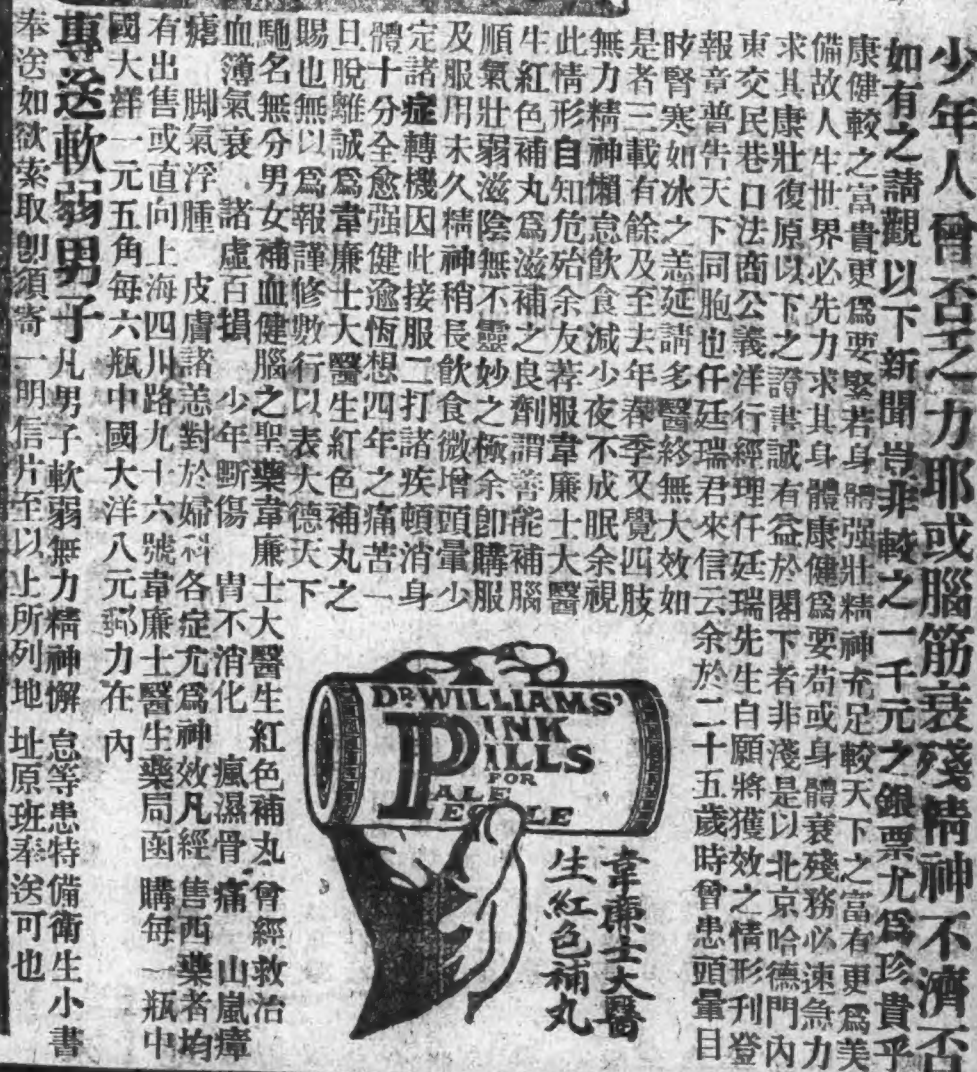 少年人曾否乏力耶或腦筋衰殘精神不濟否
如有之請觀以下新聞豈非較之一千元之銀票尤為珍貴乎
康健較之富貴更為要緊若身體强壯精神充足較天下之富有更為美
備故人生世界必先力求其身體康健為要苟或身體衰殘務必速急力
求其康壯復原以下之證書誠有益於閣下者非淺是以北京哈德門內
東交民巷口法商公義洋行經理任廷瑞先生自願將獲效之情形刊登
報章普告天下同胞也任廷瑞君來信云余於二十五歲時曾患頭暈目
眩腎寒如冰之恙延請多醫終無大效如
是者三載有餘及至去年春季又覺四肢
無力精神懶怠飲食減少夜不成眠余視
此情形自知危殆余友荐服韋廉士大醫
生紅色補丸為滋補之良劑謂善能補腦
順氣壯弱滋陰無不靈妙之極余卽購服
及服用未久精神稍長飲食微增頭暈少
定諸症轉機因此接服二打諸疾頓消身
體十分全愈强健逾恆想四年之痛苦一
旦脫離誠為韋廉士大醫生紅色補丸之
賜也無以為報謹修數行以表大德天下
馳名無分男女補血健腦之聖藥韋廉士大醫生紅色補丸曾經救治
血薄氣衰 諸虛百損 少年斲傷 胃不消化 瘋濕骨痛 山嵐瘴
瘧 脚氣浮腫 皮膚諸恙對於婦科各症尤為神效凡經售西藥者均
有出售或直向上海四川路九十六號韋廉士醫生藥局函購每一瓶中
國大洋一元五角每六瓶中國大洋八元郵力在內
專送軟弱男子凡男子軟弱無力精神懈怠等患特備衛生小書
奉送如欲索取卽須寄一明信片至以上所列地址原班奉送可也
DR WILLIAMS'
PINK
PILLS
FOR
PALE
PEOPLE
韋廉士大醫
生紅色補丸